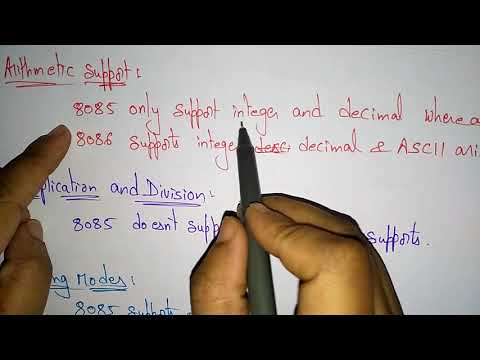 Arithmetic Support:
8085 only support integer and decimal where
8086 supports integer decimal & ASCII
and Division:
8085 doesnt supports.
Modes:
8085 supports